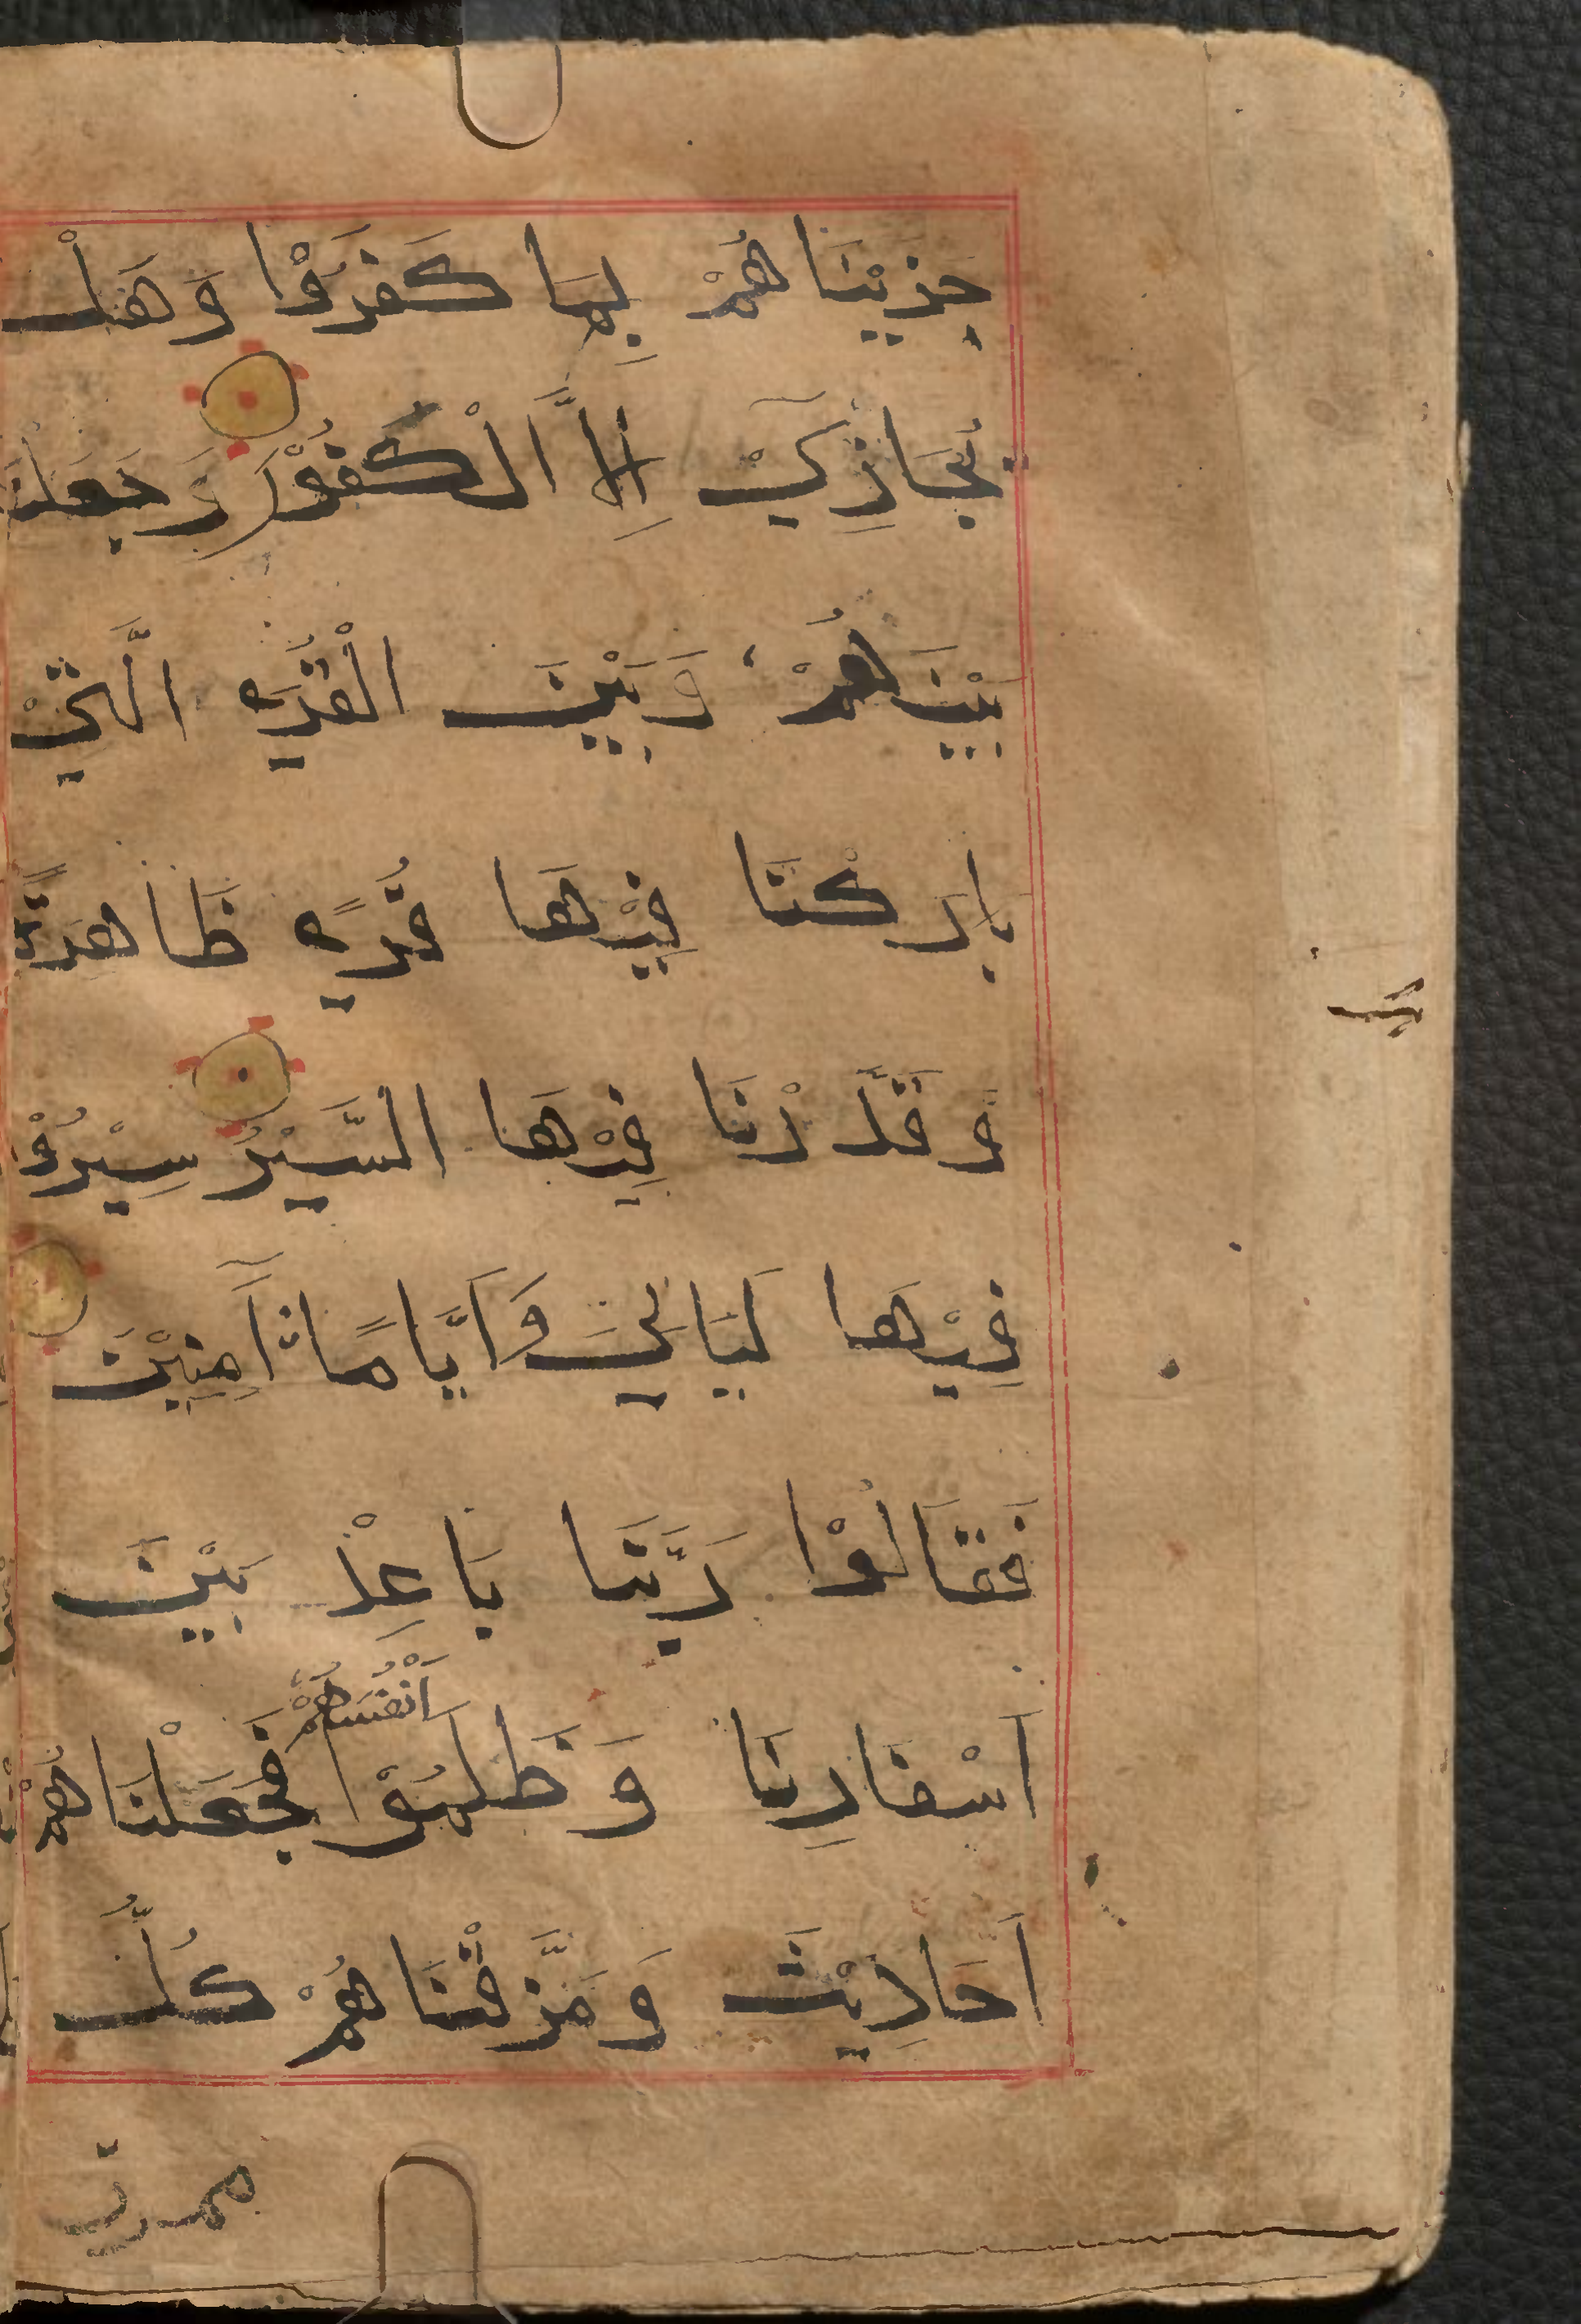 جَزَيْنَاهُمْ بِمَا كَفَرُوْا وَهَلْ
نُجَازِيْ اِلَّا الْكَفُوْرَ وَجَعَلْنَا
بَيْنَهُمْ وَبَيْنَ الْقُرَى الَّتِيْ
بَارَكْنَا فِيْهَا قُرًى ظَاهِرَةً
وَقَدَّرْنَا فِيْهَا السَّيْرَ سِيْرُوْا
فِيْهَا لَيَالِيَ وَاَيَّامًا اٰمِنِيْنَ
فَقَالُوْا رَبَّنَا بَاعِدْ بَيْنَ
اَسْفَارِنَا وَظَلَمُوْا اَنْفُسَهُمْ فَجَعَلْنَاهُمْ
اَحَادِيْثَ وَمَزَّقْنَاهُمْ كُلَّ
ممزق